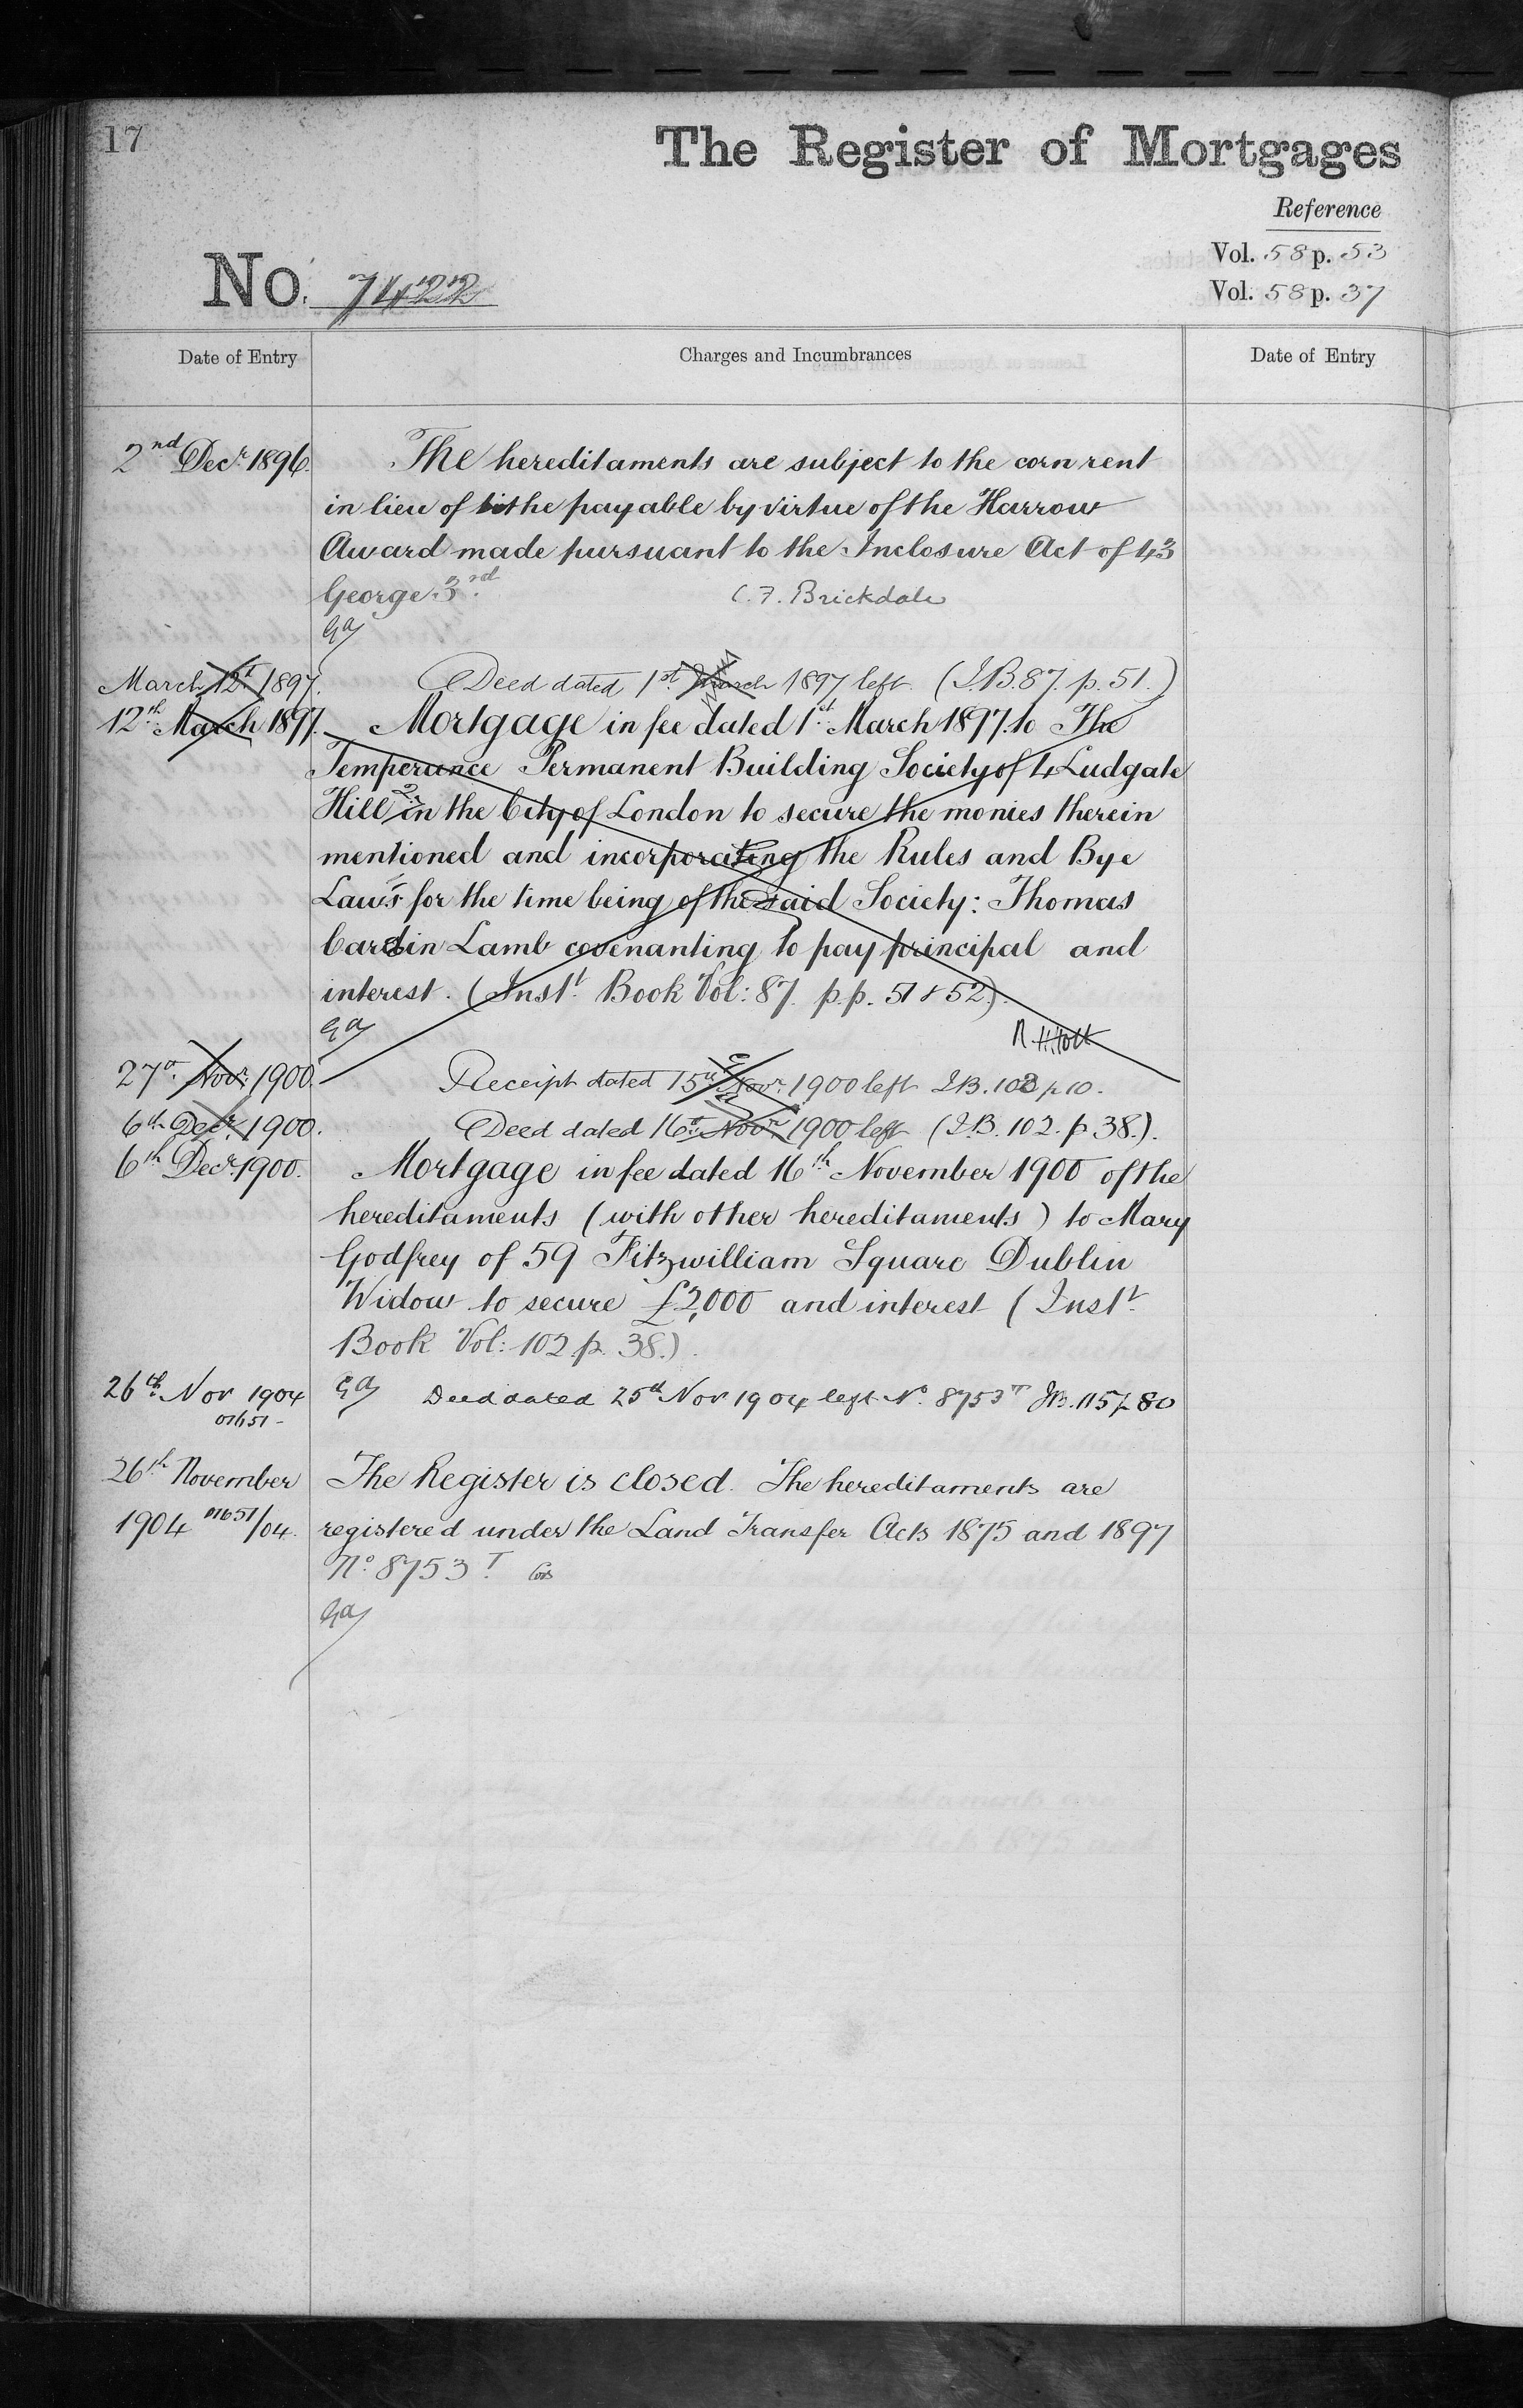 17
The Register of Mortgages
Reference
Vol. 58 p. 53
No. 7422
Vol. 58 p. 37
Date of Entry
Charges and Incumbrances
Date of Entry
2nd Decr. 1896. The hereditaments are subject to the corn rent
in lieu of tithe payable by virtue of the Harrow
Award made pursuant to the Inclosure Act of 43
George 3rd. C. F. Brickdale
Ga
March 12th 1897. Deed dated 1st. March 1897 left. (I.B. 87. p. 51.)
12th March 1897. Mortgage in fee dated 1st March 1897 to The
Temperance Permanent Building Society of 4 Ludgate
Hill in the City of London to secure the monies therein
mentioned and incorporating the Rules and Bye
Laws for the time being of the said Society: Thomas
Lamb covenanting to pay principal and
interest. (Instt. Book Vol: 87. p.p. 51 & 52).
Ga
27th. Novr. 1900. Receipt dated 15th Novr. 1900 left I.B. 102 p 10.
6th Decr. 1900. Deed dated 16th Novr. 1900 left (I.B. 102. p 38.).
6th Decr. 1900. Mortgage in fee dated 16th November 1900 of the
hereditaments (with other hereditaments) to Mary
Godfrey of 59 Fitzwilliam Square Dublin
Widow to secure £2,000 and interest (Instt.
Book Vol: 102 p. 38.).
26th. Nov 1904 Ga Deed dated 25th Nov 1904 left No. 8753T I.B. 115 p 80
01651
26th November The Register is closed. The hereditaments are
1904 01651/04. registered under the Land Transfer Acts 1875 and 1897
No. 8753T.
Ga